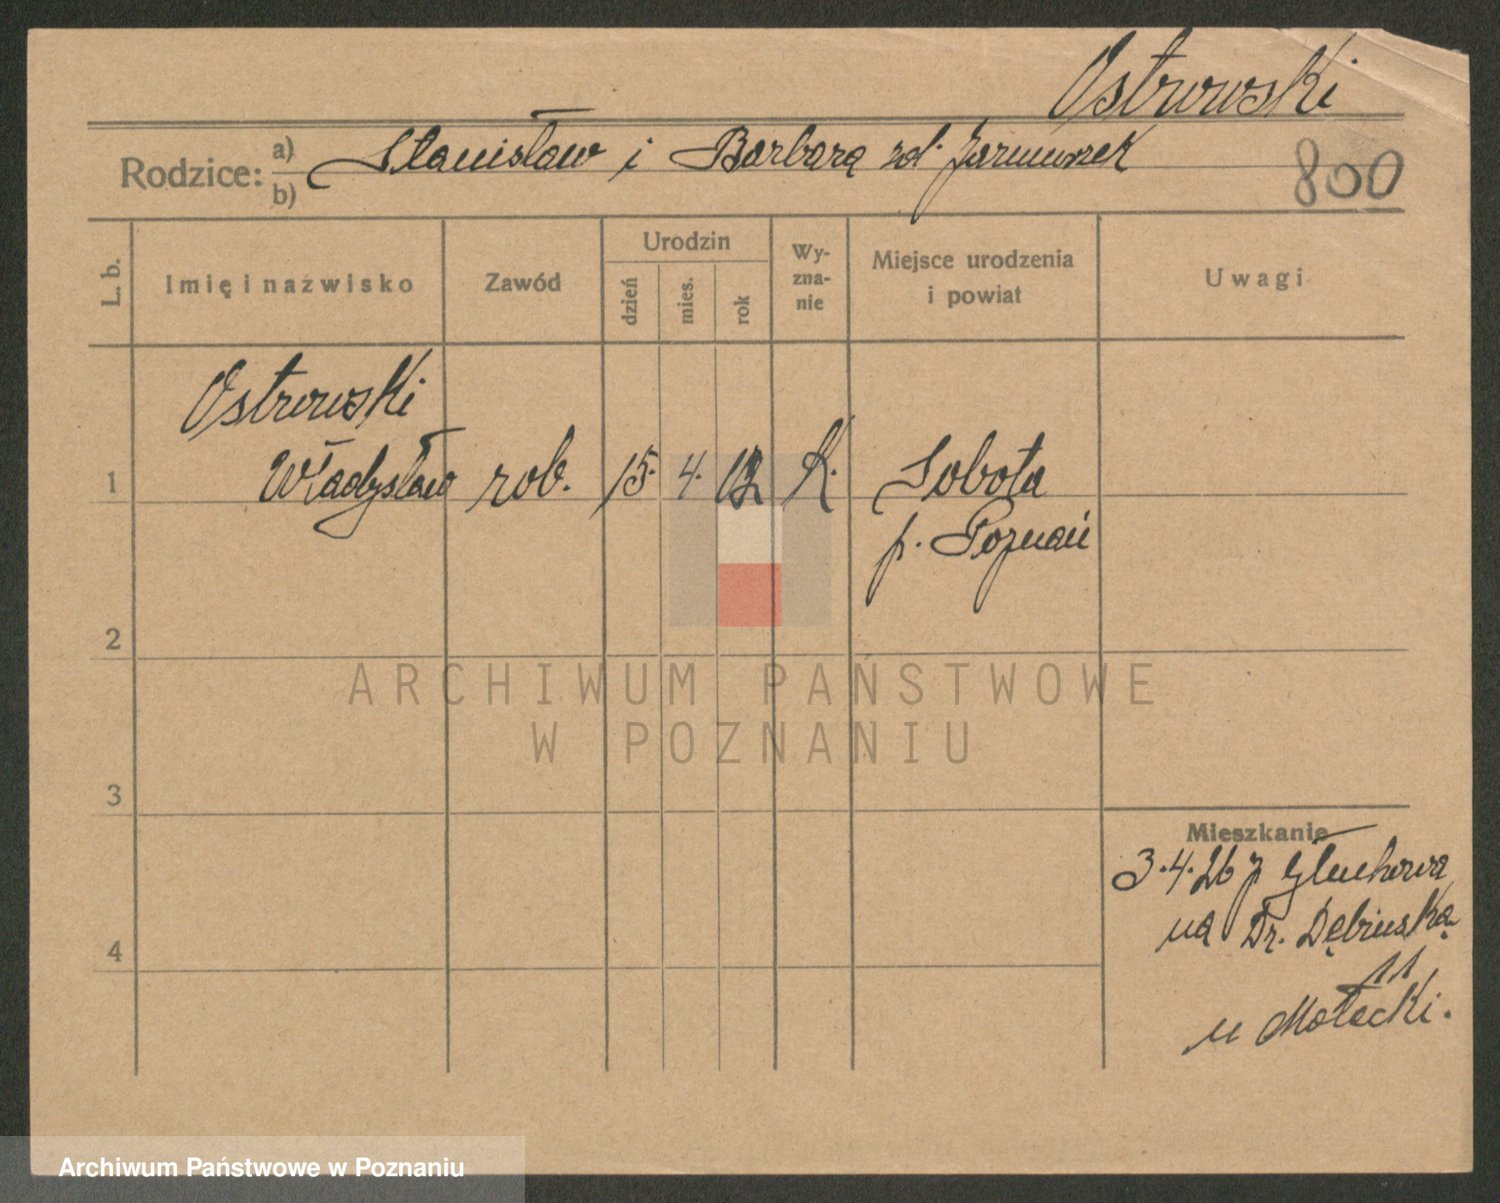 Ostrowski
Rodzice: a) b) Stanisław i Barbara zd. Jarmuszek
800
L. b.
Imię i nazwisko
Zawód
Urodzin
dzień
mies.
rok
Wy-
zna-
nie
Miejsce urodzenia
i powiat
Uwagi
Ostrowski
1 Władysław rob. 15. 4. K. Sobota
p. Poznań
2
3
4
Mieszkanie
3.4.26 z Głuchowa
na Dr. Dębińska
11
u Małecki.
ARCHIWUM PAŃSTWOWE
W POZNANIU
Archiwum Państwowe w Poznaniu